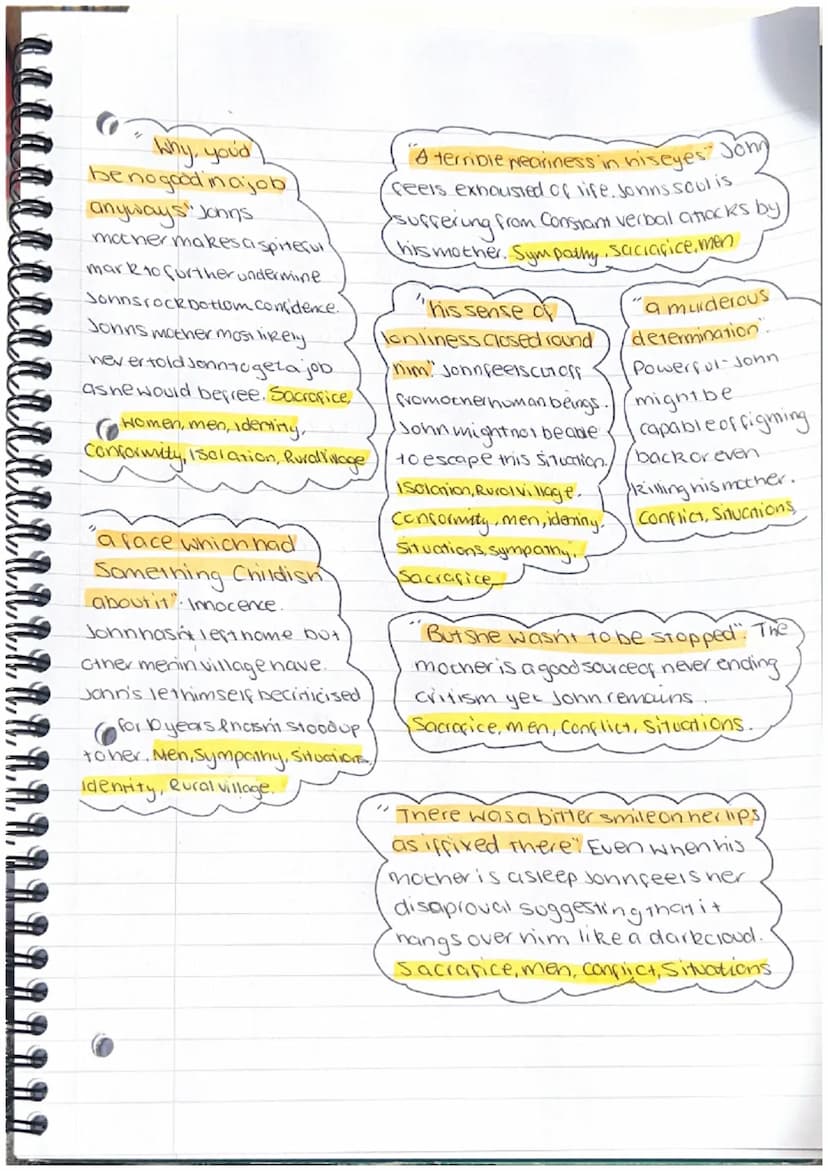 "Why, you'd
be no good in a job
anyways" Johns
mother makes a spiteful
mark to further undermine
Johns rock bottom confidence.
Johns mother most likely
never told John to get a job
as he would be free. Sacrafice,
women, men, identity,
Conformity, Isolation, Rural Village
"A terrible weariness in his eyes" John
feels exhausted of life. Johns soul is
suffering from constant verbal attacks by
his mother. Sympathy, sacrafice, men
"his sense of
lonliness closed round
him". John feels cut off
from other human beings.
John might not be able
to escape this situation.
Isolation, Rural village.
Conformity, men, identity.
Situations, sympathy,
Sacrafice
"a murderous
determination".
Powerful - John
might be
capable of figning
back or even
killing his mother.
Conflict, Situations
"a face which had
Something Childish
about it". Innocence.
John hasn't left home but
other men in village have.
John's let himself be criticised
for 10 years & hasn't stood up
to her. Men, Sympathy, Situations
identity, Rural village.
"But she wasn't to be stopped". The
mother is a good source of never ending
critism yet John remains.
Sacrafice, men, Conflict, Situations.
"There was a bitter smile on her lips
as if fixed there" Even when his
mother is asleep John feels her
disaproval suggesting that it
hangs over him like a dark cloud.
Sacrafice, men, conflict, Situations